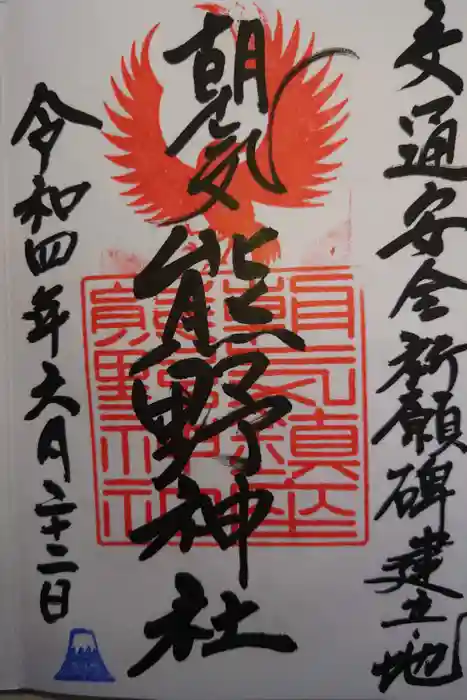 交通安全祈願碑建立地
朝気
熊野神社
朝気鎮座
熊野神社
令和四年六月二十二日